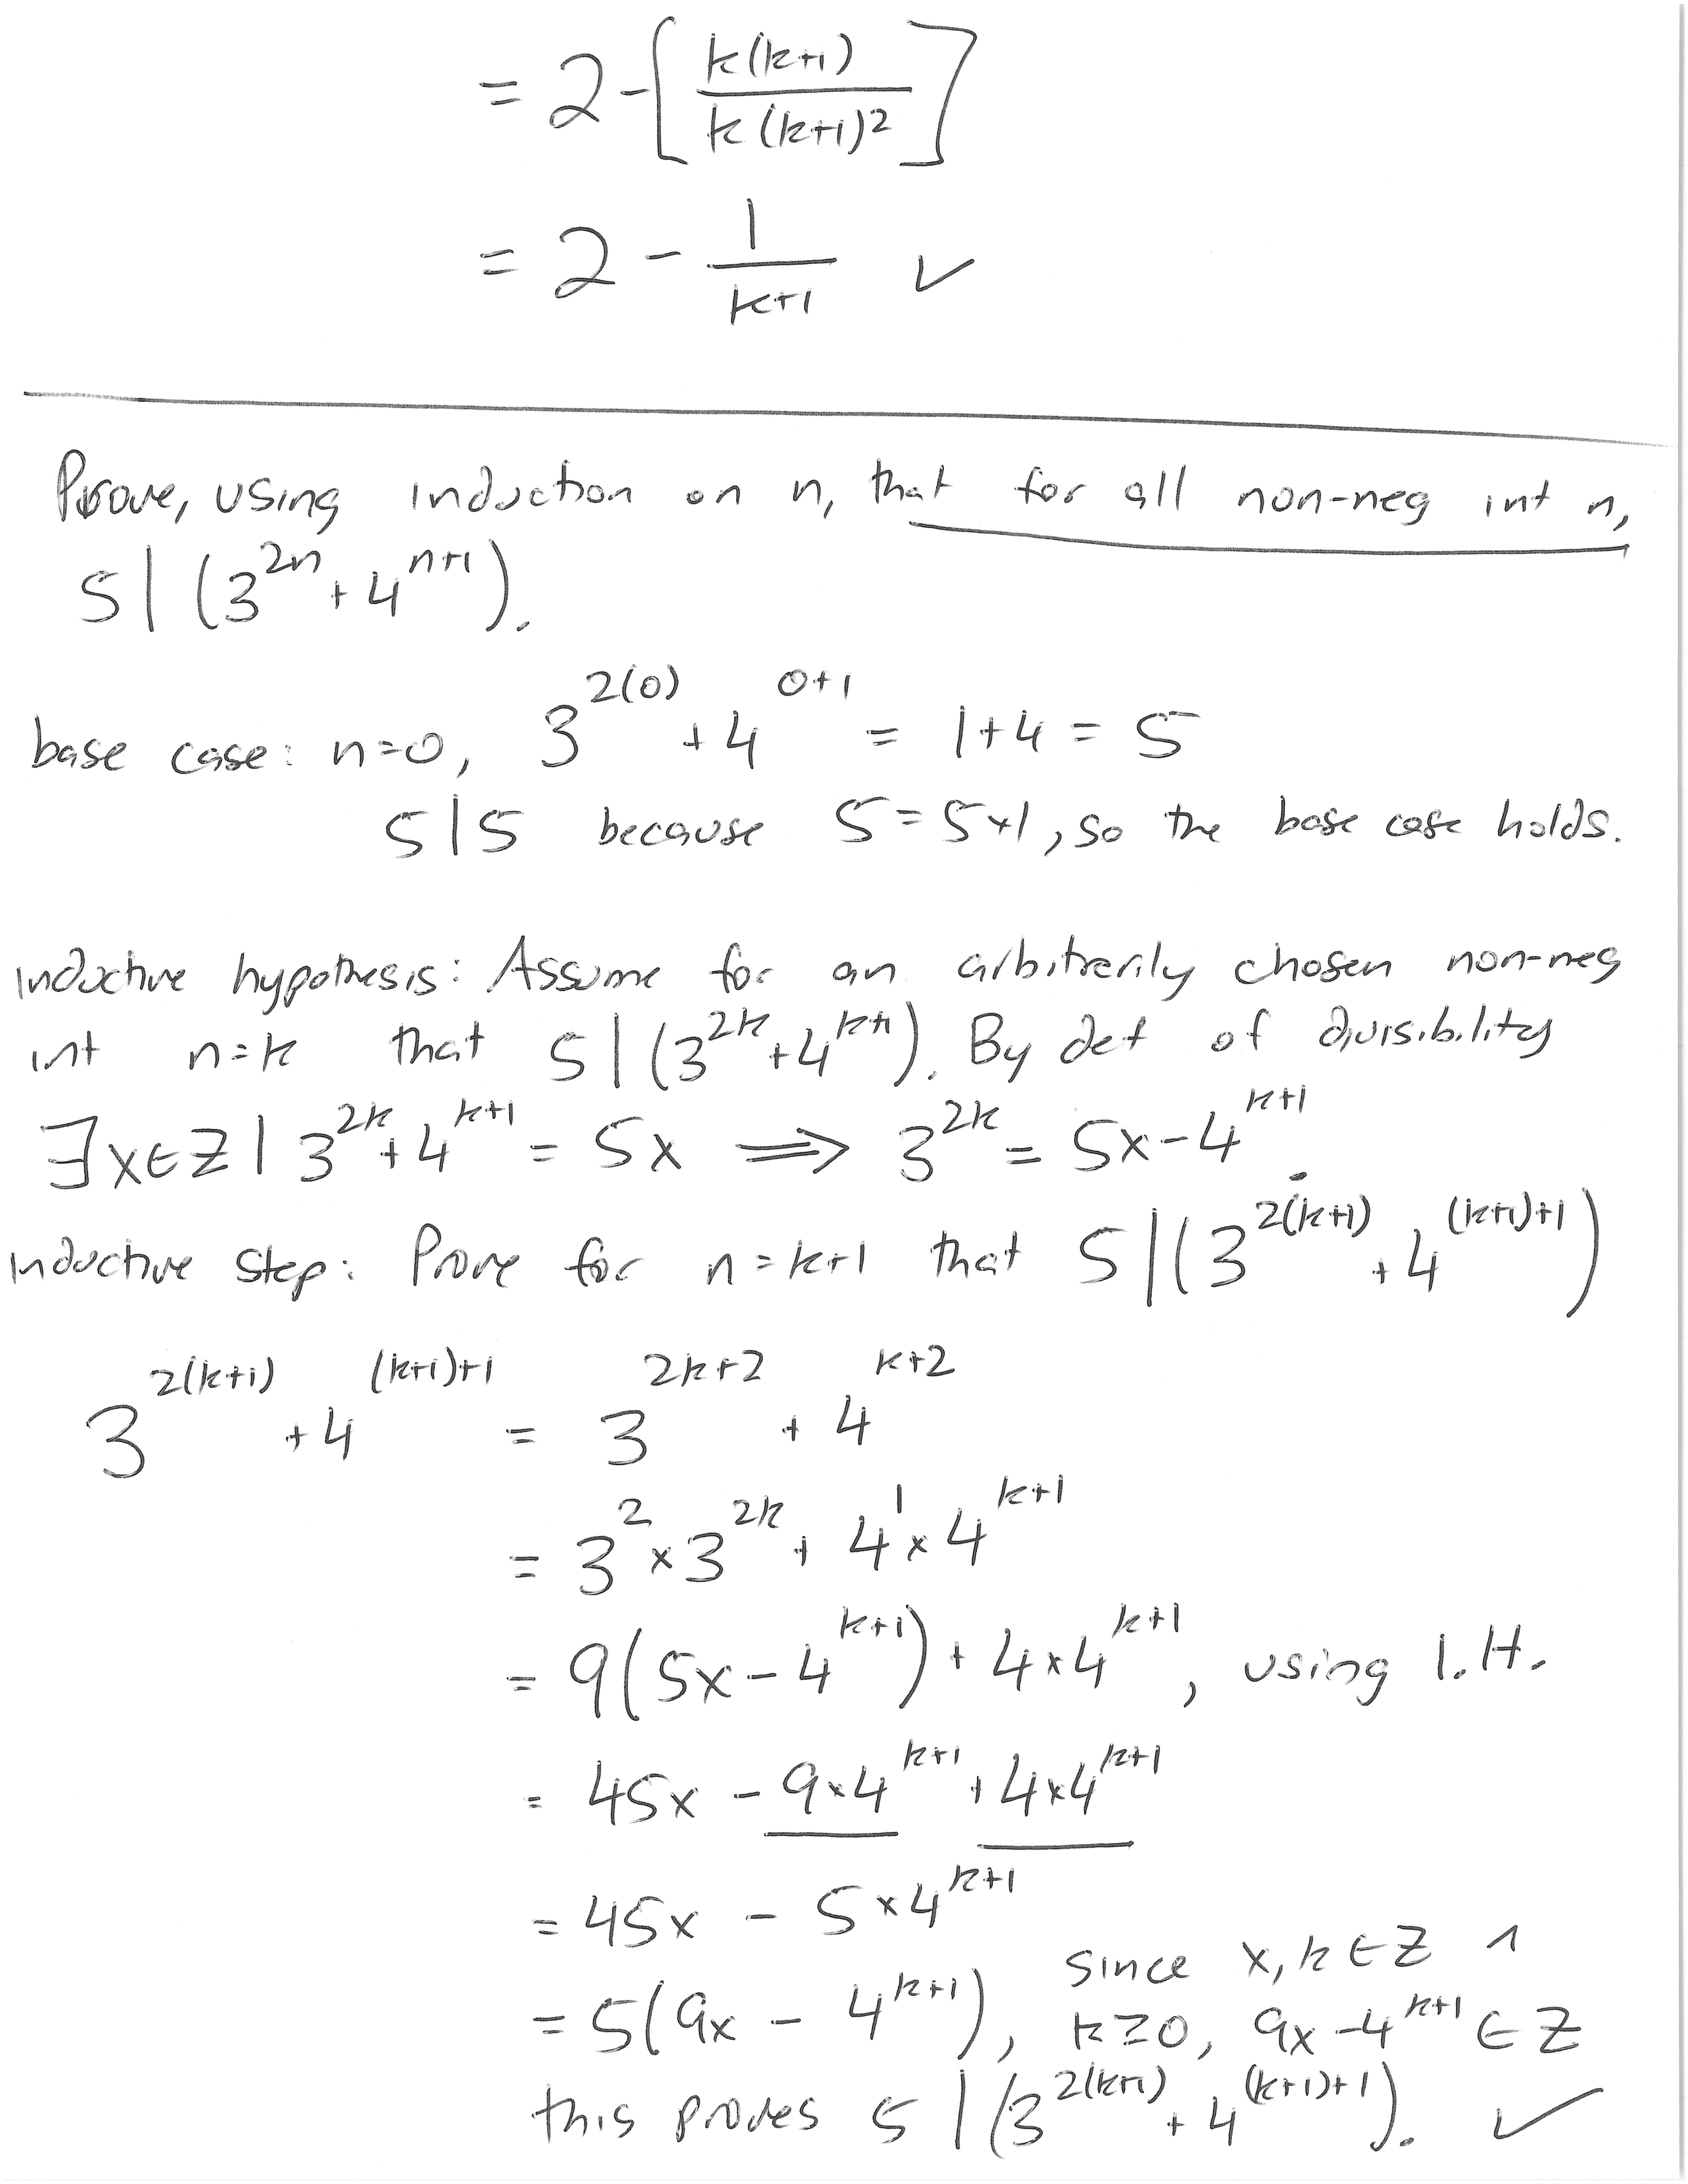 = 2 - [ k(k+1) / k(k+1)² ]
= 2 - 1/(k+1) ✓
Prove, using induction on n, that for all non-neg int n,
5 | (3^{2n} + 4^{n+1}).
base case: n=0, 3^{2(0)} + 4^{0+1} = 1+4 = 5
5|5 because 5=5×1, so the base case holds.
Inductive hypothesis: Assume for an arbitrarily chosen non-neg
int n=k that 5 | (3^{2k} + 4^{k+1}). By def of divisibility
∃x∈Z | 3^{2k} + 4^{k+1} = 5x ⟹ 3^{2k} = 5x - 4^{k+1}.
Inductive step: Prove for n=k+1 that 5 | (3^{2(k+1)} + 4^{(k+1)+1})
3^{2(k+1)} + 4^{(k+1)+1} = 3^{2k+2} + 4^{k+2}
= 3^2 × 3^{2k} + 4^1 × 4^{k+1}
= 9(5x - 4^{k+1}) + 4×4^{k+1}, using I.H.
= 45x - 9×4^{k+1} + 4×4^{k+1}
= 45x - 5×4^{k+1}
= 5(9x - 4^{k+1}), since x, k ∈ Z ∧
k≥0, 9x - 4^{k+1} ∈ Z
this proves 5 | (3^{2(k+1)} + 4^{(k+1)+1}). ✓